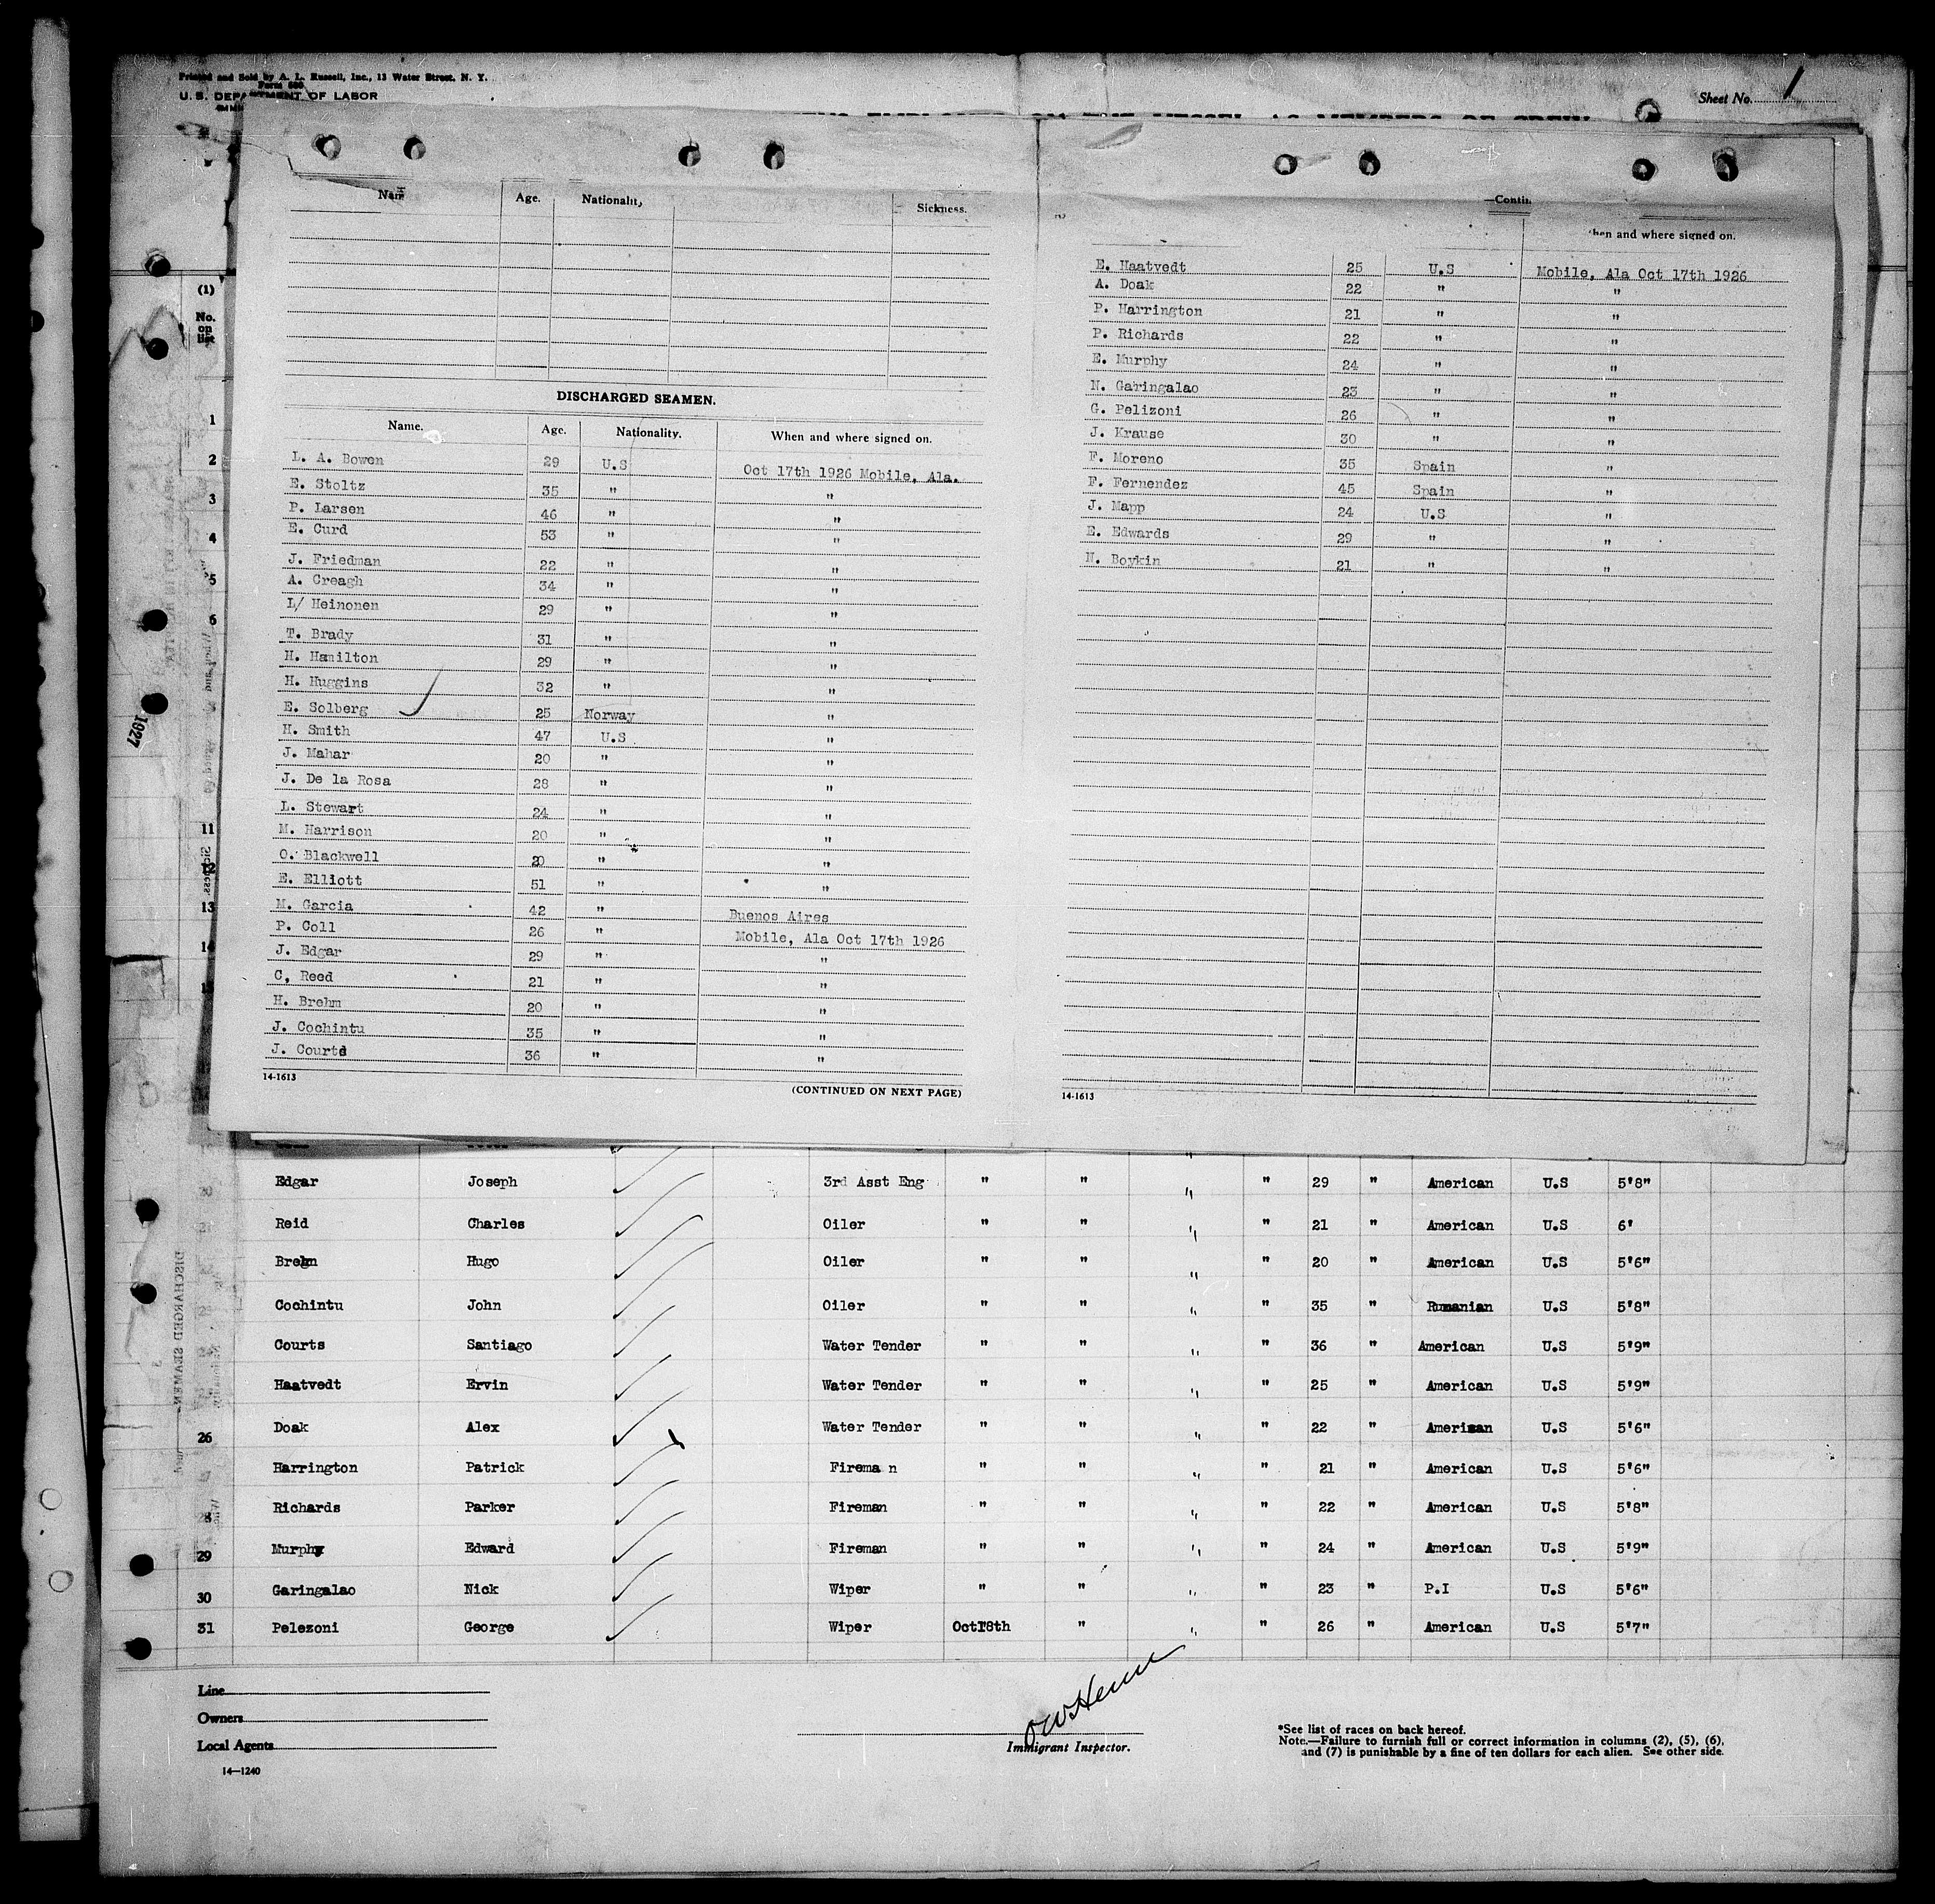 Printed and Sold by A. L. Russell, Inc., 13 Water Street, N. Y.
Form 680
U. S. DEPARTMENT OF LABOR
Sheet No. 1
(1)
No. on list
1
2
3
4
5
6
11
12
13
14
15
1927
Name Age. Nationality Sickness.
DISCHARGED SEAMEN.
Name. Age. Nationality. When and where signed on.
L. A. Bowen 29 U.S Oct 17th 1926 Mobile, Ala.
E. Stoltz 35 " "
P. Larsen 46 " "
E. Curd 53 " "
J. Friedman 22 " "
A. Creagh 34 " "
L/ Heinonen 29 " "
T. Brady 31 " "
H. Hamilton 29 " "
H. Huggins 32 " "
E. Solberg 25 Norway "
H. Smith 47 U.S "
J. Mahar 20 " "
J. De la Rosa 28 " "
L. Stewart 24 " "
M. Harrison 20 " "
O. Blackwell 20 " "
E. Elliott 51 " "
M. Garcia 42 " Buenos Aires
P. Coll 26 " Mobile, Ala Oct 17th 1926
J. Edgar 29 " "
C, Reed 21 " "
H. Brehm 20 " "
J. Cochintu 35 " "
J. Courts 36 " "
14-1613 (CONTINUED ON NEXT PAGE)
—Contin.
When and where signed on.
E. Haatvedt 25 U.S Mobile, Ala Oct 17th 1926
A. Doak 22 " "
P. Harrington 21 " "
P. Richards 22 " "
E. Murphy 24 " "
N. Garingalao 23 " "
G. Pelizoni 26 " "
J. Krause 30 " "
F. Moreno 35 Spain "
F. Fernendez 45 Spain "
J. Mapp 24 U.S "
E. Edwards 29 " "
N. Boykin 21 " "
14-1613
Edgar Joseph 3rd Asst Eng " " " " 29 " American U.S 5'8"
Reid Charles Oiler " " " " 21 " American U.S 6'
Brehm Hugo Oiler " " " " 20 " American U.S 5'6"
Cochintu John Oiler " " " " 35 " Rumanian U.S 5'8"
Courts Santiago Water Tender " " " " 36 " American U.S 5'9"
Haatvedt Ervin Water Tender " " " " 25 " American U.S 5'9"
26 Doak Alex Water Tender " " " " 22 " American U.S 5'6"
Harrington Patrick Firema n " " " " 21 " American U.S 5'6"
Richards Parker Fireman " " " " 22 " American U.S 5'8"
29 Murphy Edward Fireman " " " " 24 " American U.S 5'9"
30 Garingalao Nick Wiper " " " " 23 " P.I U.S 5'6"
31 Pelezoni George Wiper Oct18th " " " 26 " American U.S 5'7"
Line
Owners
Local Agents
14—1240
Immigrant Inspector.
*See list of races on back hereof.
Note.—Failure to furnish full or correct information in columns (2), (5), (6),
and (7) is punishable by a fine of ten dollars for each alien. See other side.